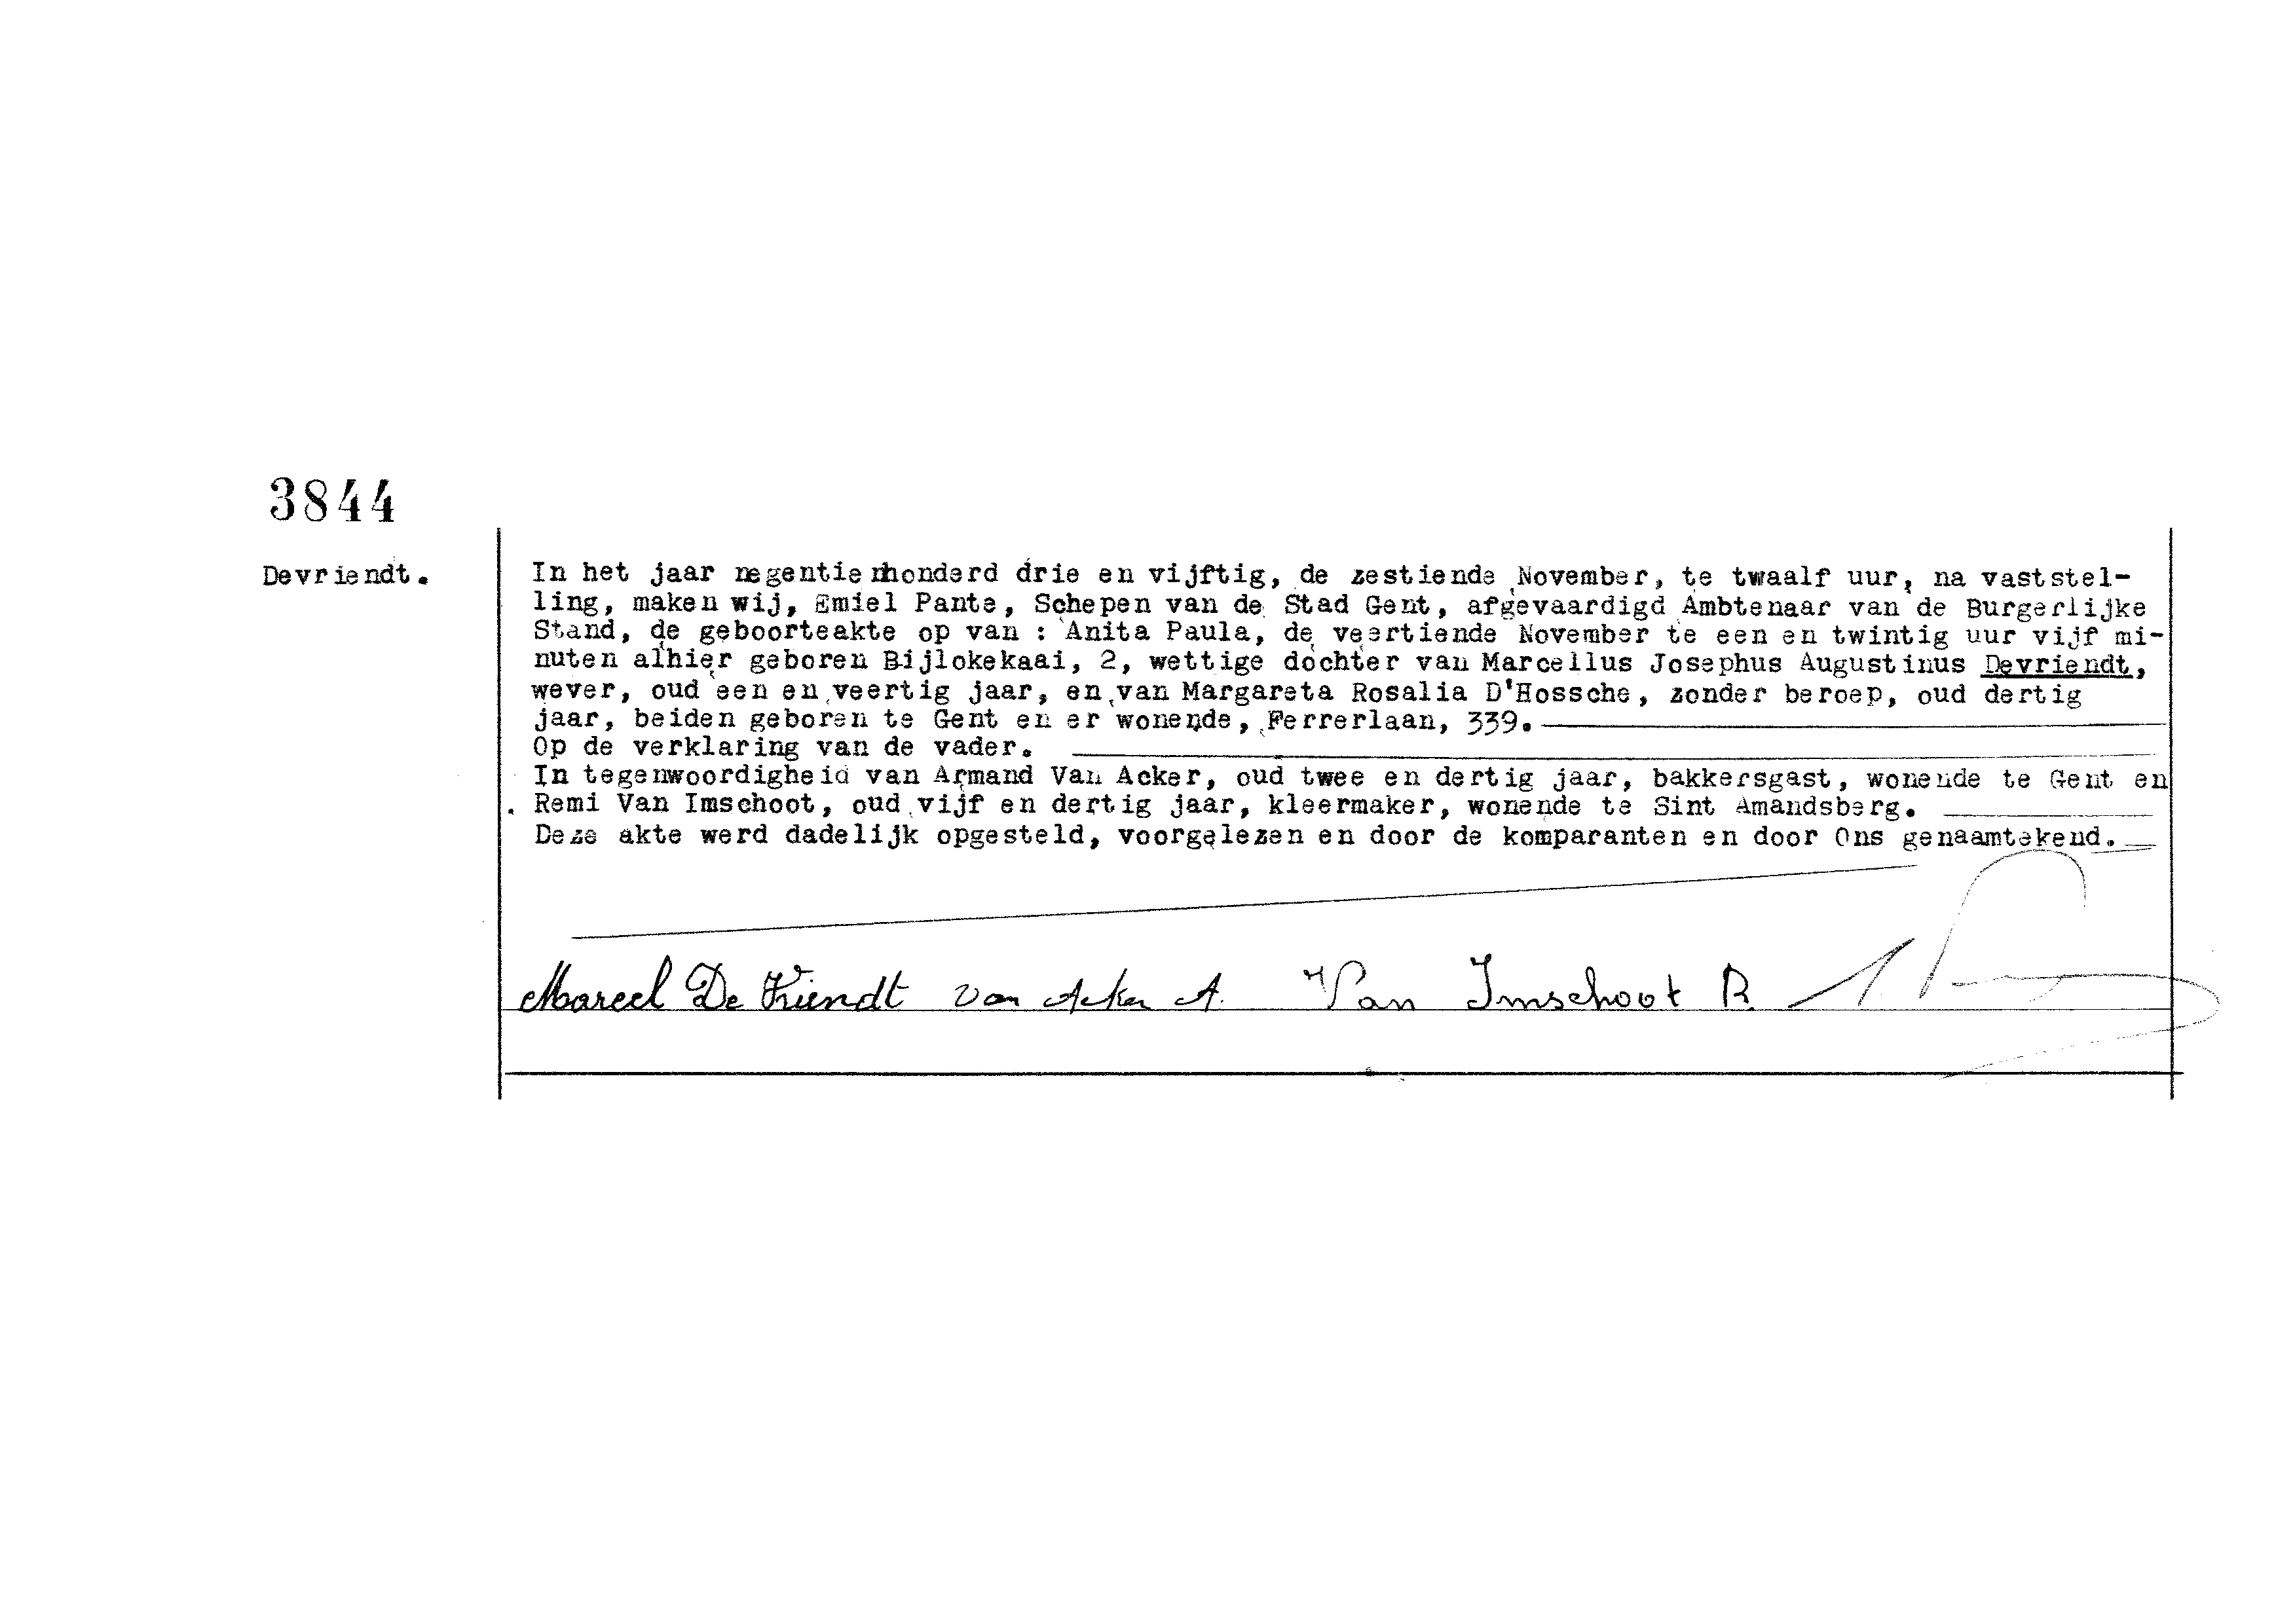 3844
Devriendt.
In het jaar negentienhonderd drie en vijftig, de zestiende November, te twaalf uur, na vaststel-
ling, maken wij, Emiel Pante, Schepen van de Stad Gent, afgevaardigd Ambtenaar van de Burgerlijke
Stand, de geboorteakte op van : Anita Paula, de veertiende November te een en twintig uur vijf mi-
nuten alhier geboren Bijlokekaai, 2, wettige dochter van Marcellus Josephus Augustinus Devriendt,
wever, oud een en veertig jaar, en van Margareta Rosalia D'Hossche, zonder beroep, oud dertig
jaar, beiden geboren te Gent en er wonende, Ferrerlaan, 339.
Op de verklaring van de vader.
In tegenwoordigheid van Armand Van Acker, oud twee en dertig jaar, bakkersgast, wonende te Gent en
Remi Van Imschoot, oud vijf en dertig jaar, kleermaker, wonende te Sint Amandsberg.
Deze akte werd dadelijk opgesteld, voorgelezen en door de komparanten en door Ons genaamtekend.
Marcel De Vriendt Van Acker A. Van Imschoot R.